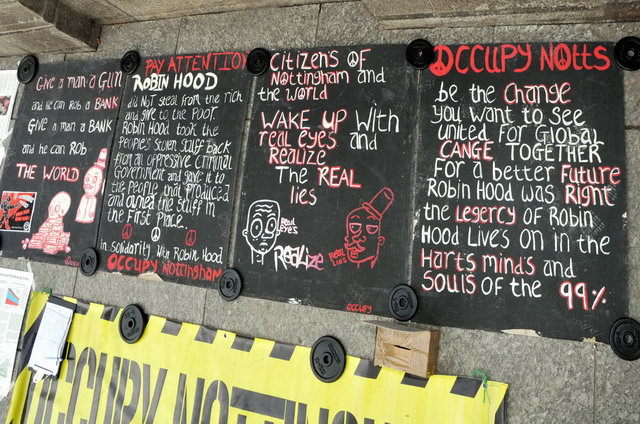 Give a man a GUN
and he can Rob a BANK
Give a man a BANK
and he can ROB
THE WORLD
PAY ATTENTION
ROBIN HOOD
did NOT steal from the rich
and give to the Poor
Robin Hood took the
Peoples stolen stuff back
from an oppressive criminal
Government and gave it to
the people that produced
and owned the stuff in
the First Place.
in solidarity with Robin Hood
OCCUPY Nottingham
Citizens OF
Nottingham and
the WORLD
WAKE UP With
real eyes and
Realize
The REAL
lies
Real
eyes
Realize
Real
Lies
OCCUPY
OCCUPY NOTTS
be the Change
you want to see
united For Global
CANGE TOGETHER
For a better Future
Robin Hood was Right
the Legercy of Robin
Hood Lives ON in the
Harts minds and
Souls of the 99%
OCCUPY NOTTING